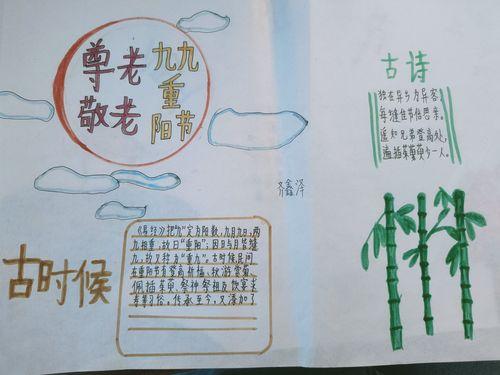 尊老
敬老
九九
重
阳节
古诗
独在异乡为异客,
每逢佳节倍思亲。
遥知兄弟登高处,
遍插茱萸少一人。
齐鑫泽
古时候
《易经》把“九”定为阳数,九月九日,两
九相重,故曰“重阳”;因日与月皆逢
九,故又称为“重九”。古时候民间
在重阳节有登高祈福、秋游赏菊、
佩插茱萸、祭神祭祖及饮宴求
寿等习俗。传承至今,又添加了